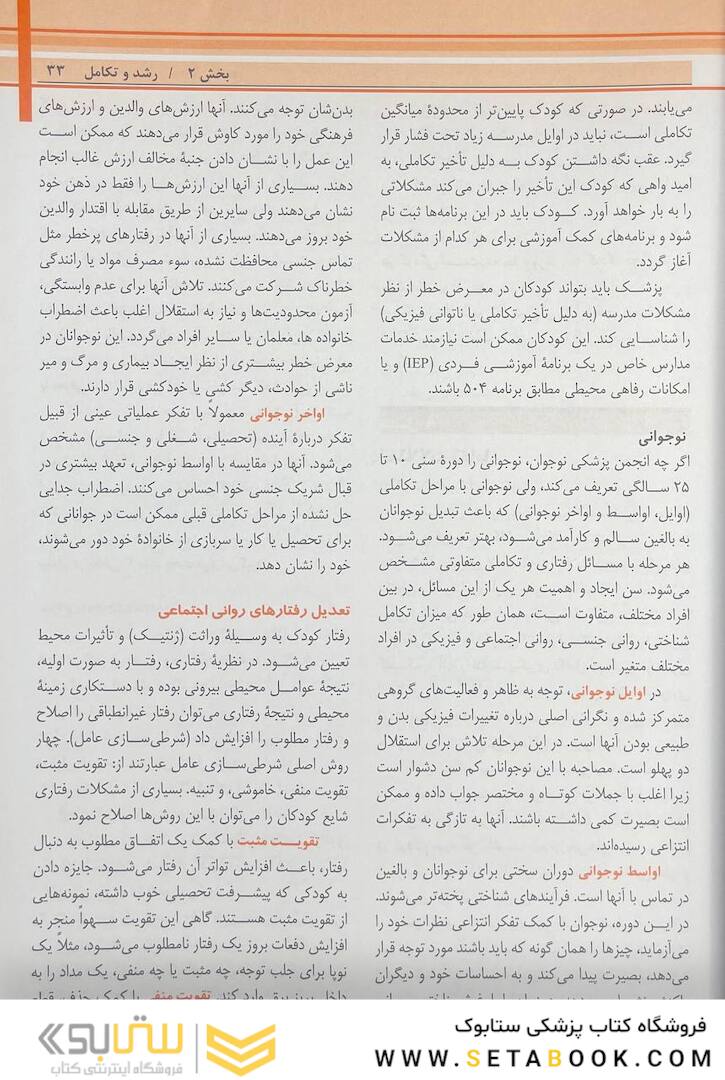 بخش ۲ / رشد و تکامل ۳۳
می‌یابند. در صورتی که کودک پایین‌تر از محدودهٔ میانگین
تکاملی است، نباید در اوایل مدرسه زیاد تحت فشار قرار
گیرد. عقب نگه داشتن کودک به دلیل تأخیر تکاملی، به
امید واهی که کودک این تأخیر را جبران می‌کند مشکلاتی
را به بار خواهد آورد. کودک باید در این برنامه‌ها ثبت نام
شود و برنامه‌های کمک آموزشی برای هر کدام از مشکلات
آغاز گردد.
پزشک باید بتواند کودکان در معرض خطر از نظر
مشکلات مدرسه (به دلیل تأخیر تکاملی یا ناتوانی فیزیکی)
را شناسایی کند. این کودکان ممکن است نیازمند خدمات
مدارس خاص در یک برنامهٔ آموزشی فردی (IEP) و یا
امکانات رفاهی محیطی مطابق برنامه ۵۰۴ باشند.
نوجوانی
اگر چه انجمن پزشکی نوجوان، نوجوانی را دورهٔ سنی ۱۰ تا
۲۵ سالگی تعریف می‌کند، ولی نوجوانی با مراحل تکاملی
(اوایل، اواسط و اواخر نوجوانی) که باعث تبدیل نوجوانان
به بالغین سالم و کارآمد می‌شود، بهتر تعریف می‌شود.
هر مرحله با مسائل رفتاری و تکاملی متفاوتی مشخص
می‌شود. سن ایجاد و اهمیت هر یک از این مسائل، در بین
افراد مختلف، متفاوت است، همان طور که میزان تکامل
شناختی، روانی جنسی، روانی اجتماعی و فیزیکی در افراد
مختلف متغیر است.
در اوایل نوجوانی، توجه به ظاهر و فعالیت‌های گروهی
متمرکز شده و نگرانی اصلی درباره تغییرات فیزیکی بدن و
طبیعی بودن آنها است. در این مرحله تلاش برای استقلال
دو پهلو است. مصاحبه با این نوجوانان کم سن دشوار است
زیرا اغلب با جملات کوتاه و مختصر جواب داده و ممکن
است بصیرت کمی داشته باشند. آنها به تازگی به تفکرات
انتزاعی رسیده‌اند.
اواسط نوجوانی دوران سختی برای نوجوانان و بالغین
در تماس با آنها است. فرآیندهای شناختی پخته‌تر می‌شوند.
در این دوره، نوجوان با کمک تفکر انتزاعی نظرات خود را
می‌آزماید، چیزها را همان گونه که باید باشند مورد توجه قرار
می‌دهد، بصیرت پیدا می‌کند و به احساسات خود و دیگران
بدن‌شان توجه می‌کنند. آنها ارزش‌های والدین و ارزش‌های
فرهنگی خود را مورد کاوش قرار می‌دهند که ممکن است
این عمل را با نشان دادن جنبهٔ مخالف ارزش غالب انجام
دهند. بسیاری از آنها این ارزش‌ها را فقط در ذهن خود
نشان می‌دهند ولی سایرین از طریق مقابله با اقتدار والدین
خود بروز می‌دهند. بسیاری از آنها در رفتارهای پرخطر مثل
تماس جنسی محافظت نشده، سوء مصرف مواد یا رانندگی
خطرناک شرکت می‌کنند. تلاش آنها برای عدم وابستگی،
آزمون محدودیت‌ها و نیاز به استقلال اغلب باعث اضطراب
خانواده ها، معلمان یا سایر افراد می‌گردد. این نوجوانان در
معرض خطر بیشتری از نظر ایجاد بیماری و مرگ و میر
ناشی از حوادث، دیگر کشی یا خودکشی قرار دارند.
اواخر نوجوانی معمولاً با تفکر عملیاتی عینی از قبیل
تفکر دربارهٔ آینده (تحصیلی، شغلی و جنسی) مشخص
می‌شود. آنها در مقایسه با اواسط نوجوانی، تعهد بیشتری در
قبال شریک جنسی خود احساس می‌کنند. اضطراب جدایی
حل نشده از مراحل تکاملی قبلی ممکن است در جوانانی که
برای تحصیل یا کار یا سربازی از خانوادهٔ خود دور می‌شوند،
خود را نشان دهد.
تعدیل رفتارهای روانی اجتماعی
رفتار کودک به وسیلهٔ وراثت (ژنتیک) و تأثیرات محیط
تعیین می‌شود. در نظریهٔ رفتاری، رفتار به صورت اولیه،
نتیجهٔ عوامل محیطی بیرونی بوده و با دستکاری زمینهٔ
محیطی و نتیجهٔ رفتاری می‌توان رفتار غیرانطباقی را اصلاح
و رفتار مطلوب را افزایش داد (شرطی‌سازی عامل). چهار
روش اصلی شرطی‌سازی عامل عبارتند از: تقویت مثبت،
تقویت منفی، خاموشی، و تنبیه. بسیاری از مشکلات رفتاری
شایع کودکان را می‌توان با این روش‌ها اصلاح نمود.
تقویت مثبت با کمک یک اتفاق مطلوب به دنبال
رفتار، باعث افزایش تواتر آن رفتار می‌شود. جایزه دادن
به کودکی که پیشرفت تحصیلی خوب داشته، نمونه‌هایی
از تقویت مثبت هستند. گاهی این تقویت سهواً منجر به
افزایش دفعات بروز یک رفتار نامطلوب می‌شود، مثلاً یک
نوپا برای جلب توجه، چه مثبت یا چه منفی، یک مداد را به
داخل پریز برق وارد کند. تقویت منفی با کمک حذف
ستابوک
فروشگاه اینترنتی کتاب
فروشگاه کتاب پزشکی ستابوک
WWW.SETABOOK.COM